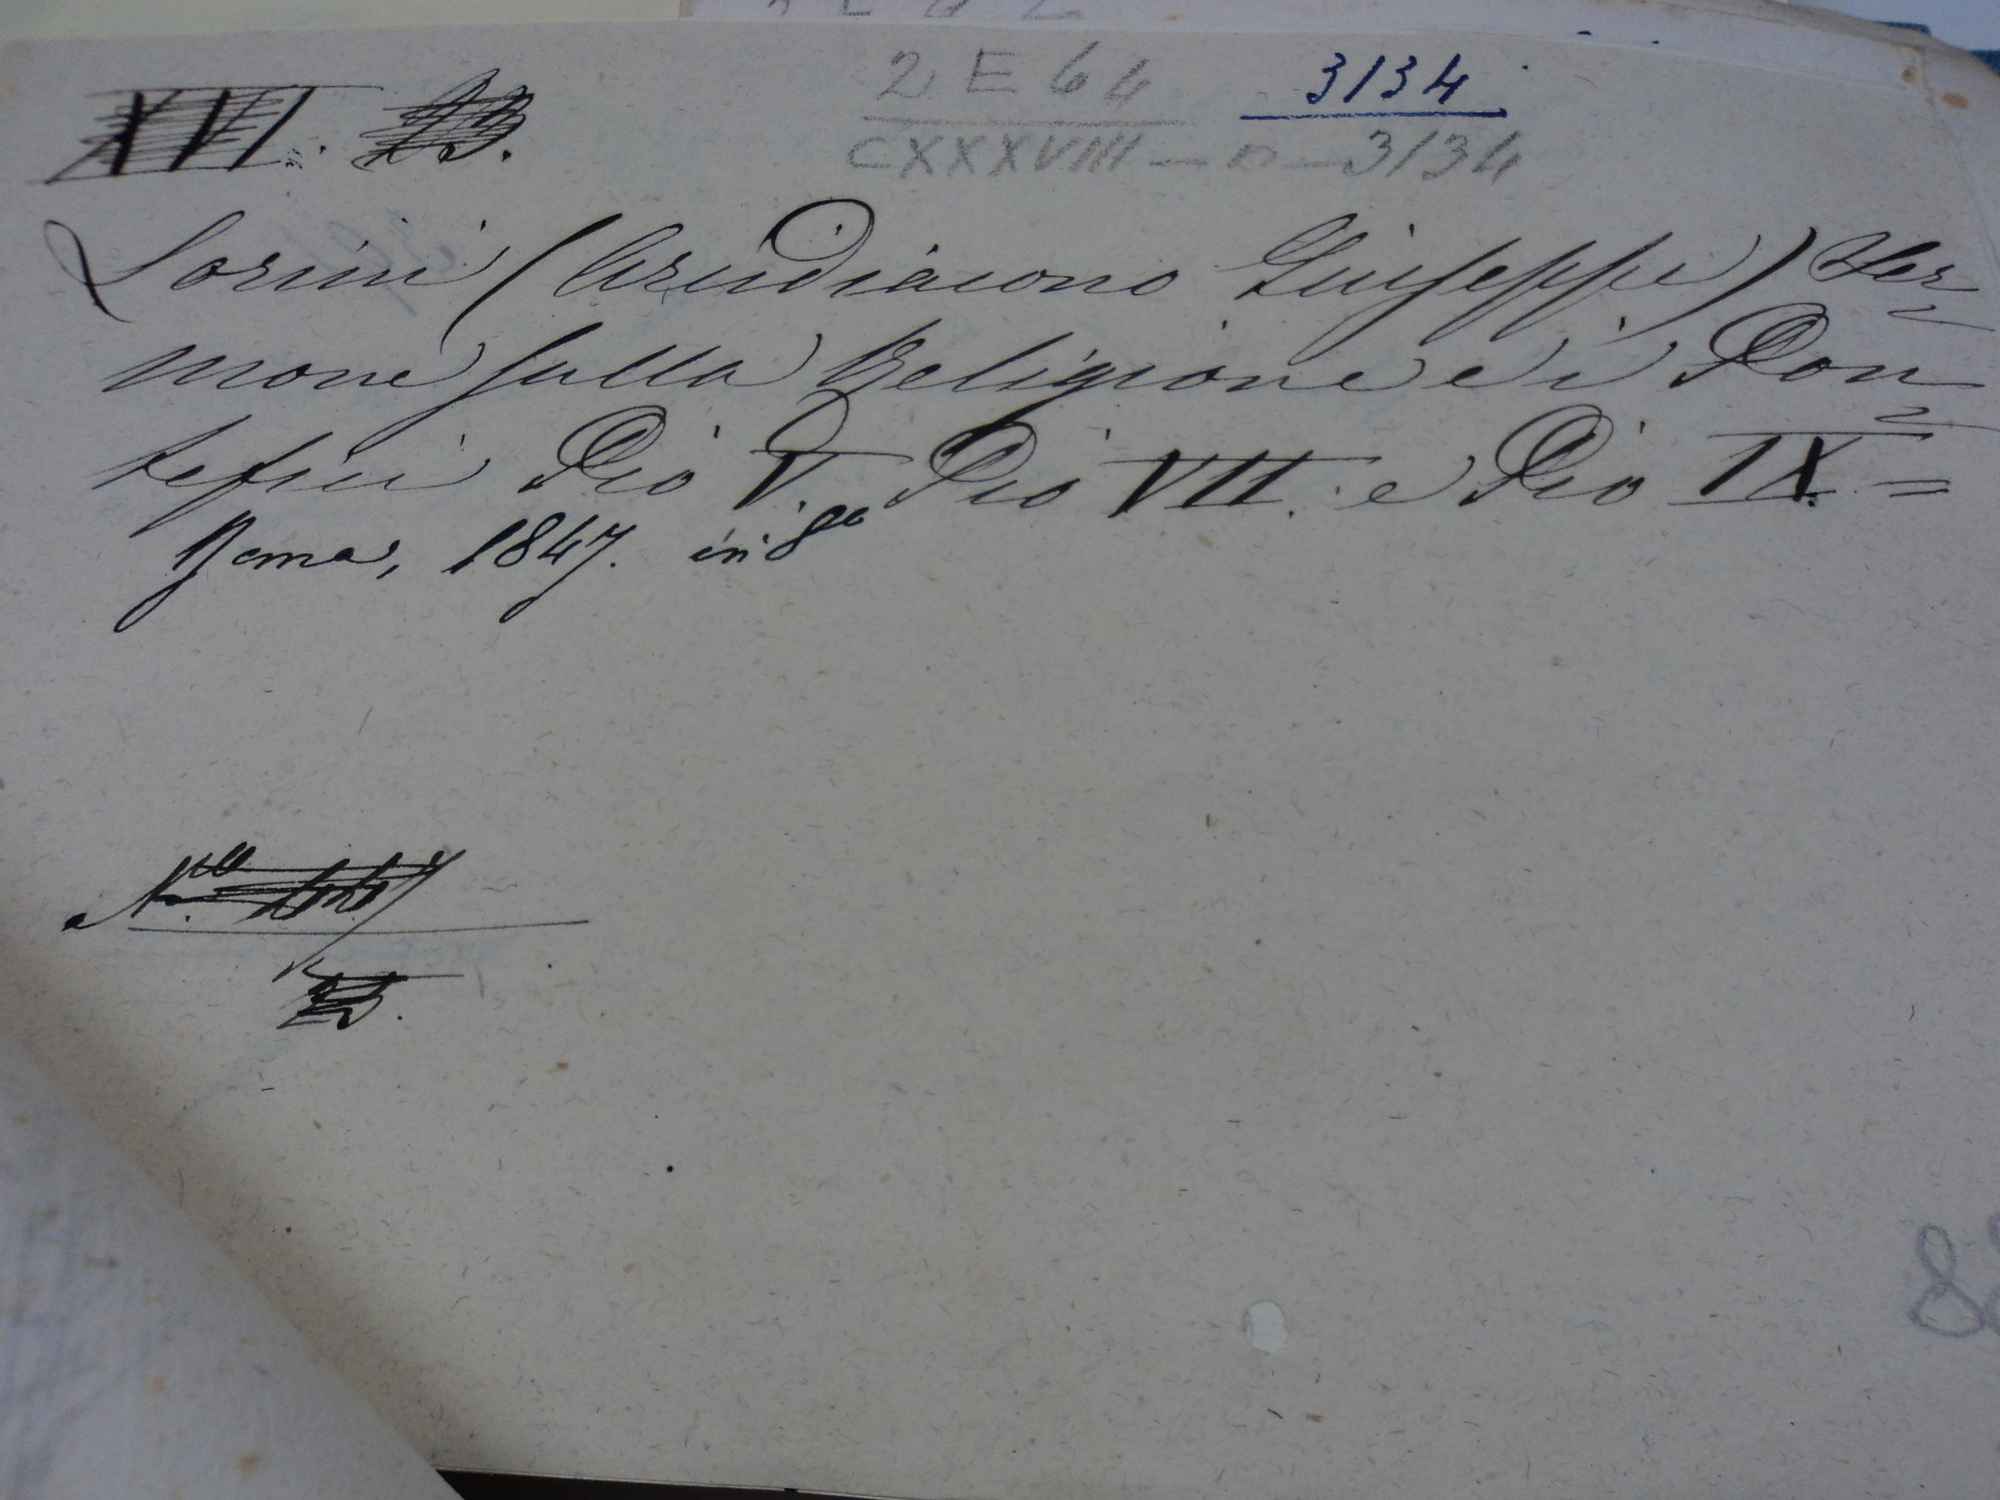 XVI. B.
2 E 64
3134
CXXXVIII — D — 3134
Lorini (Arcidiacono Giuseppe) Ser=
mone sulla Religione e i Pon=
tefici Pio V. Pio VII. e Pio IX. =
Roma, 1847. in 8º